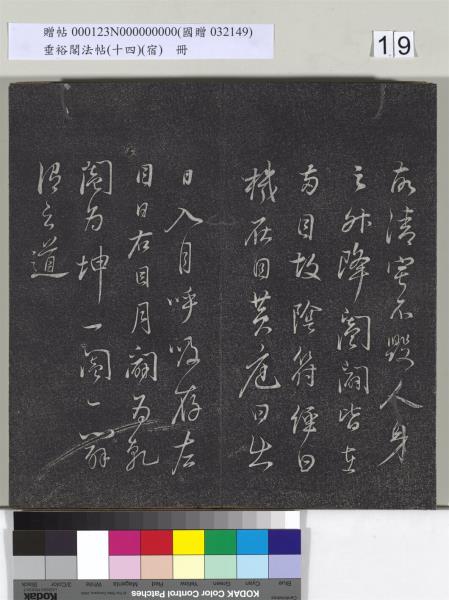 贈帖 000123N000000000(國贈 032149)
垂裕閣法帖(十四)(宿) 冊
19
故清寧不毀人身
之升降闔闢皆在
兩目故陰符經曰
機在目黃庭曰出
日入月呼吸存左
目日右目月闢為乾
闔為坤一闔一闢
謂之道
KODAK Color Control Patches
Blue Cyan Green Yellow Red Magenta White 3/Color Black